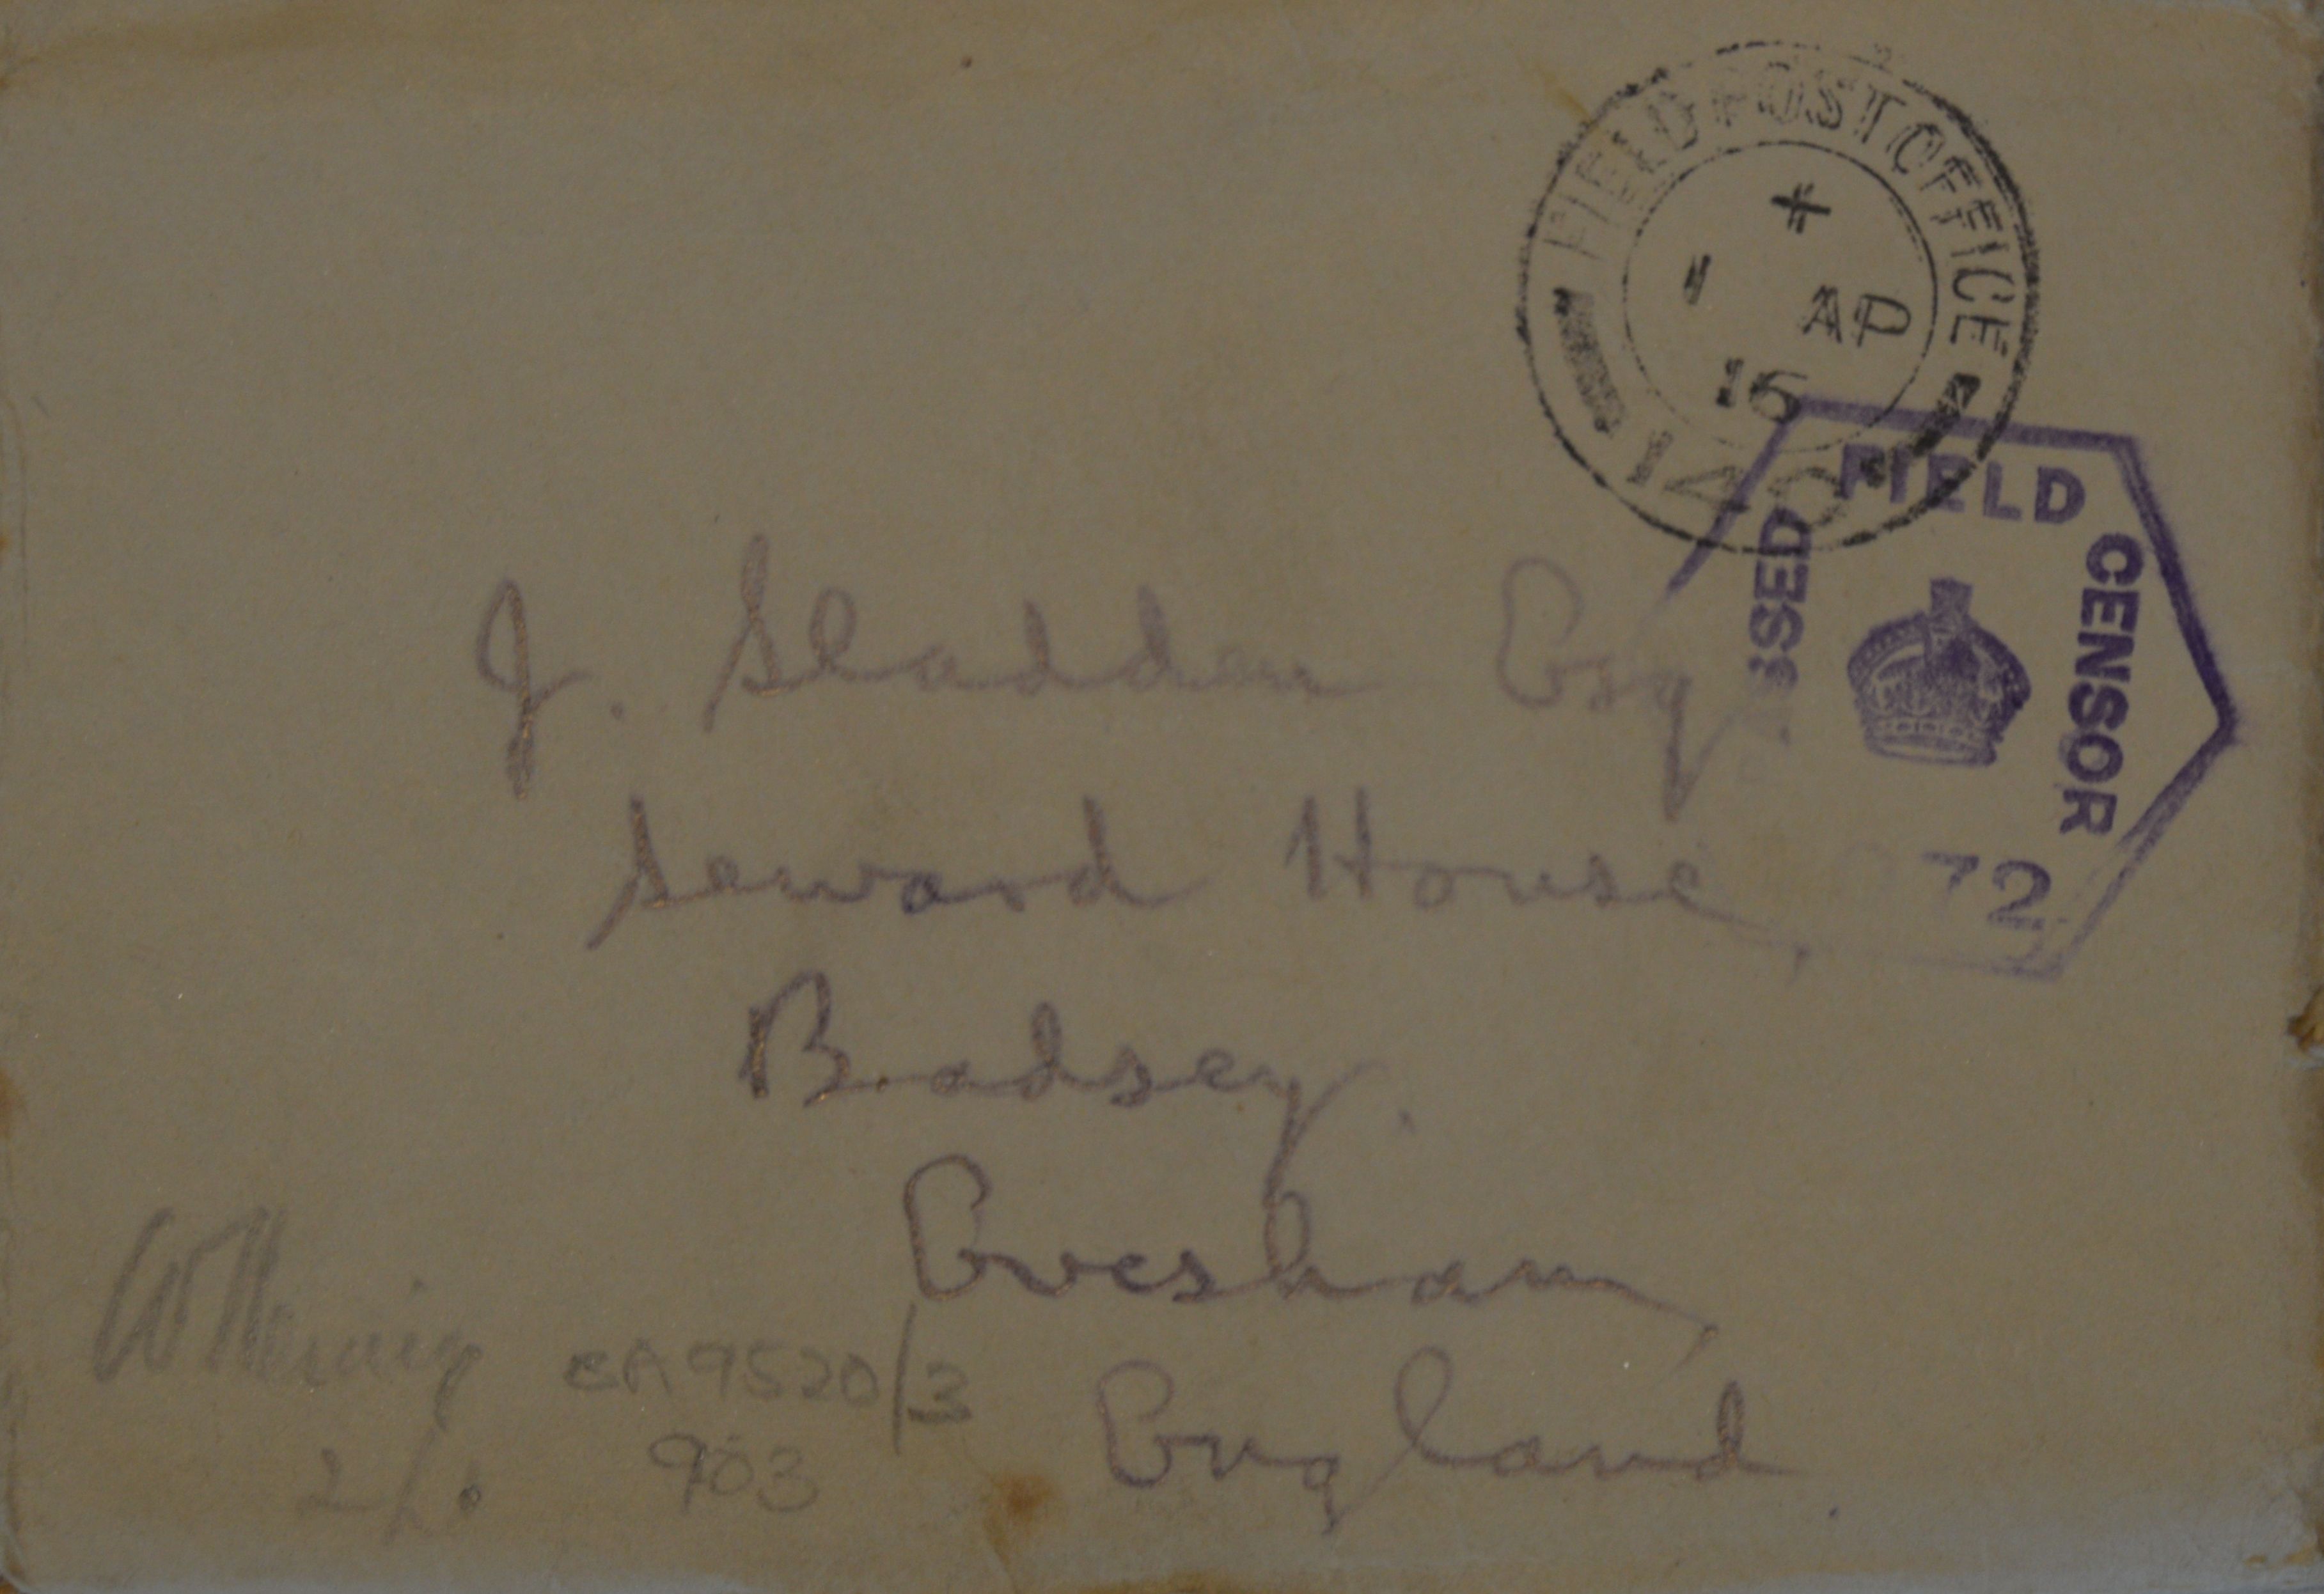 FIELD POST OFFICE
1 AP
16
140
FIELD
CENSOR
72
J. Sladden Esq
Seward House,
Badsey.
Evesham,
England.
EA9520/3
903